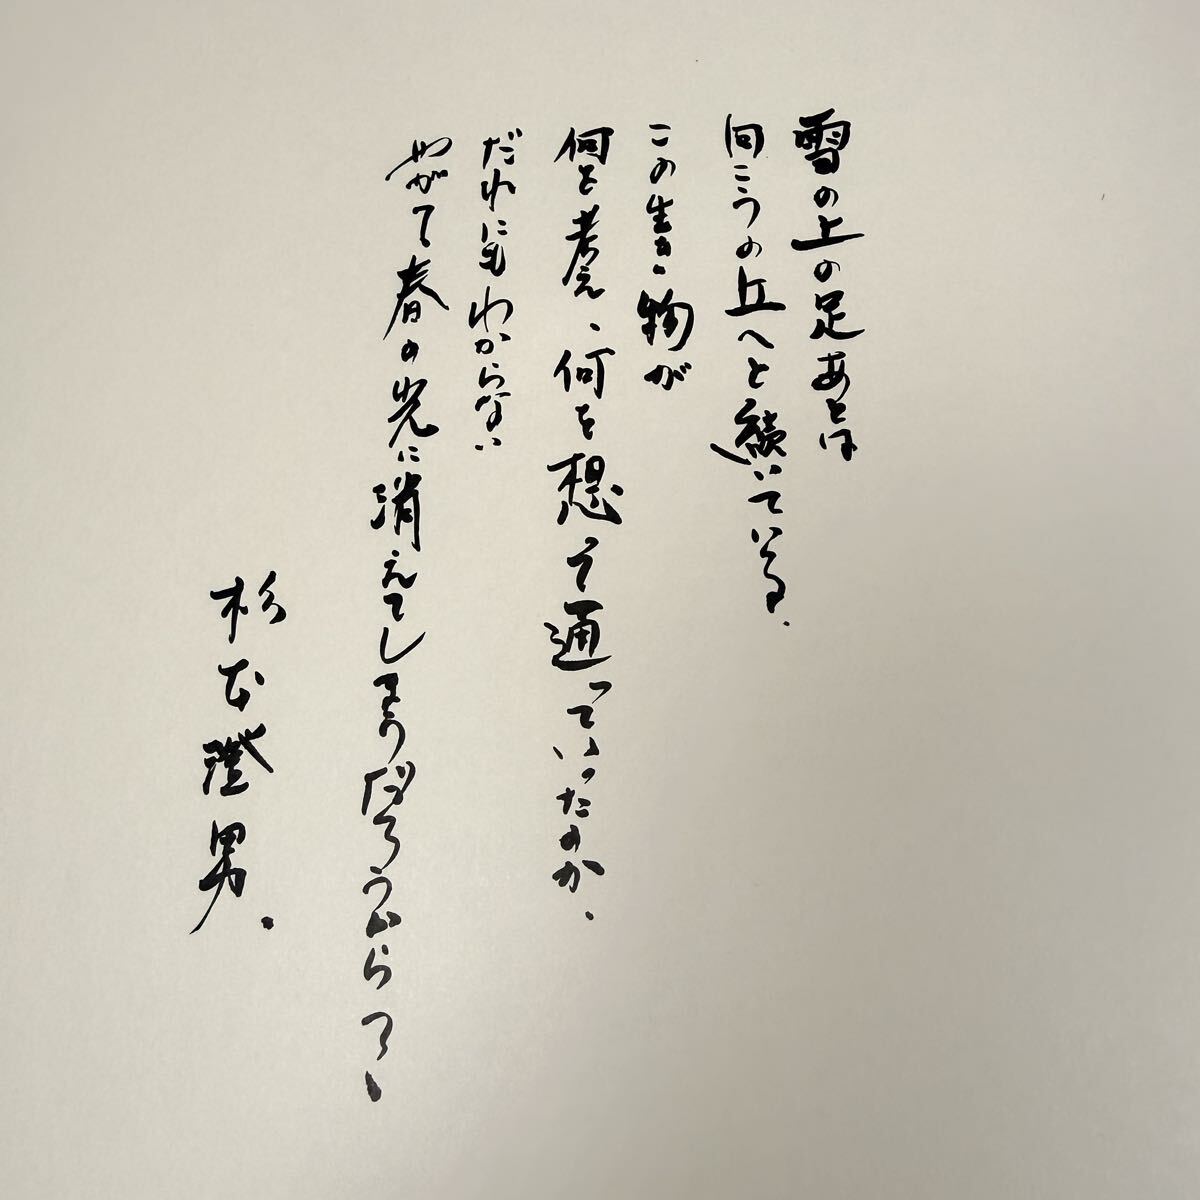 雪の上の足あとは
向こうの丘へと続いている.
この生き物が
何を考え、何を想って通っていったのか.
だれにもわからない
やがて春の光に消えてしまうだろうから
杉本澄男.